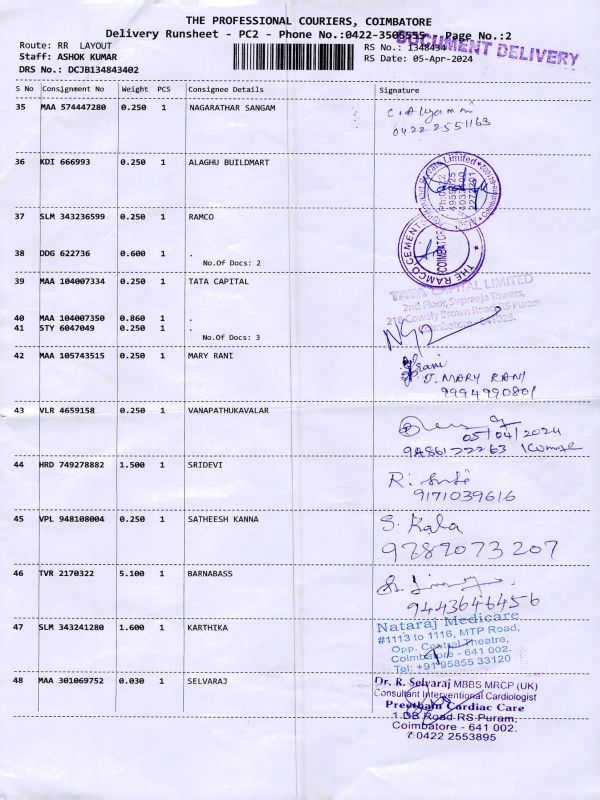 THE PROFESSIONAL COURIERS, COIMBATORE
Delivery Runsheet - PC2 - Phone No.:0422-3506555 Page No.:2
DOCUMENT DELIVERY
Route: RR LAYOUT
RS No.: 1348434
Staff: ASHOK KUMAR
RS Date: 05-Apr-2024
DRS No.: DCJB134843402
S No Consignment No Weight PCS Consignee Details Signature
35 MAA 574447280 0.250 1 NAGARATHAR SANGAM
0422 2551163
36 KDI 666993 0.250 1 ALAGHU BUILDMART
37 SLM 343236599 0.250 1 RAMCO
THE RAMCO CEMENT
COIMBATOR
38 DDG 622736 0.600 1 .
No.Of Docs: 2
39 MAA 104007334 0.250 1 TATA CAPITAL
TATA CAPITAL LIMITED
2nd Floor, Supreeja Towers,
Cowly Brown Road, RS Puram
Coimbatore - 641025.
40 MAA 104007350 0.860 1 .
41 STY 6047049 0.250 1 .
No.Of Docs: 3
42 MAA 105743515 0.250 1 MARY RANI
J. MARY RANI
9994990801
43 VLR 4659158 0.250 1 VANAPATHUKAVALAR
05/04/2024
9486122263 Kumar
44 HRD 749278882 1.500 1 SRIDEVI
9171039616
45 VPL 948108004 0.250 1 SATHEESH KANNA
S. Kala
9787073207
46 TVR 2170322 5.100 1 BARNABASS
9443646456
47 SLM 343241280 1.600 1 KARTHIKA
Nataraj Medicare
#1113 to 1116, MTP Road,
Opp. Central Theatre,
Coimbatore - 641 002.
Tel: +91 95855 33120
48 MAA 301069752 0.030 1 SELVARAJ
Dr. R. Selvaraj MBBS MRCP (UK)
Consultant Interventional Cardiologist
Preetham Cardiac Care
1.DB Road RS Puram,
Coimbatore - 641 002.
0422 2553895